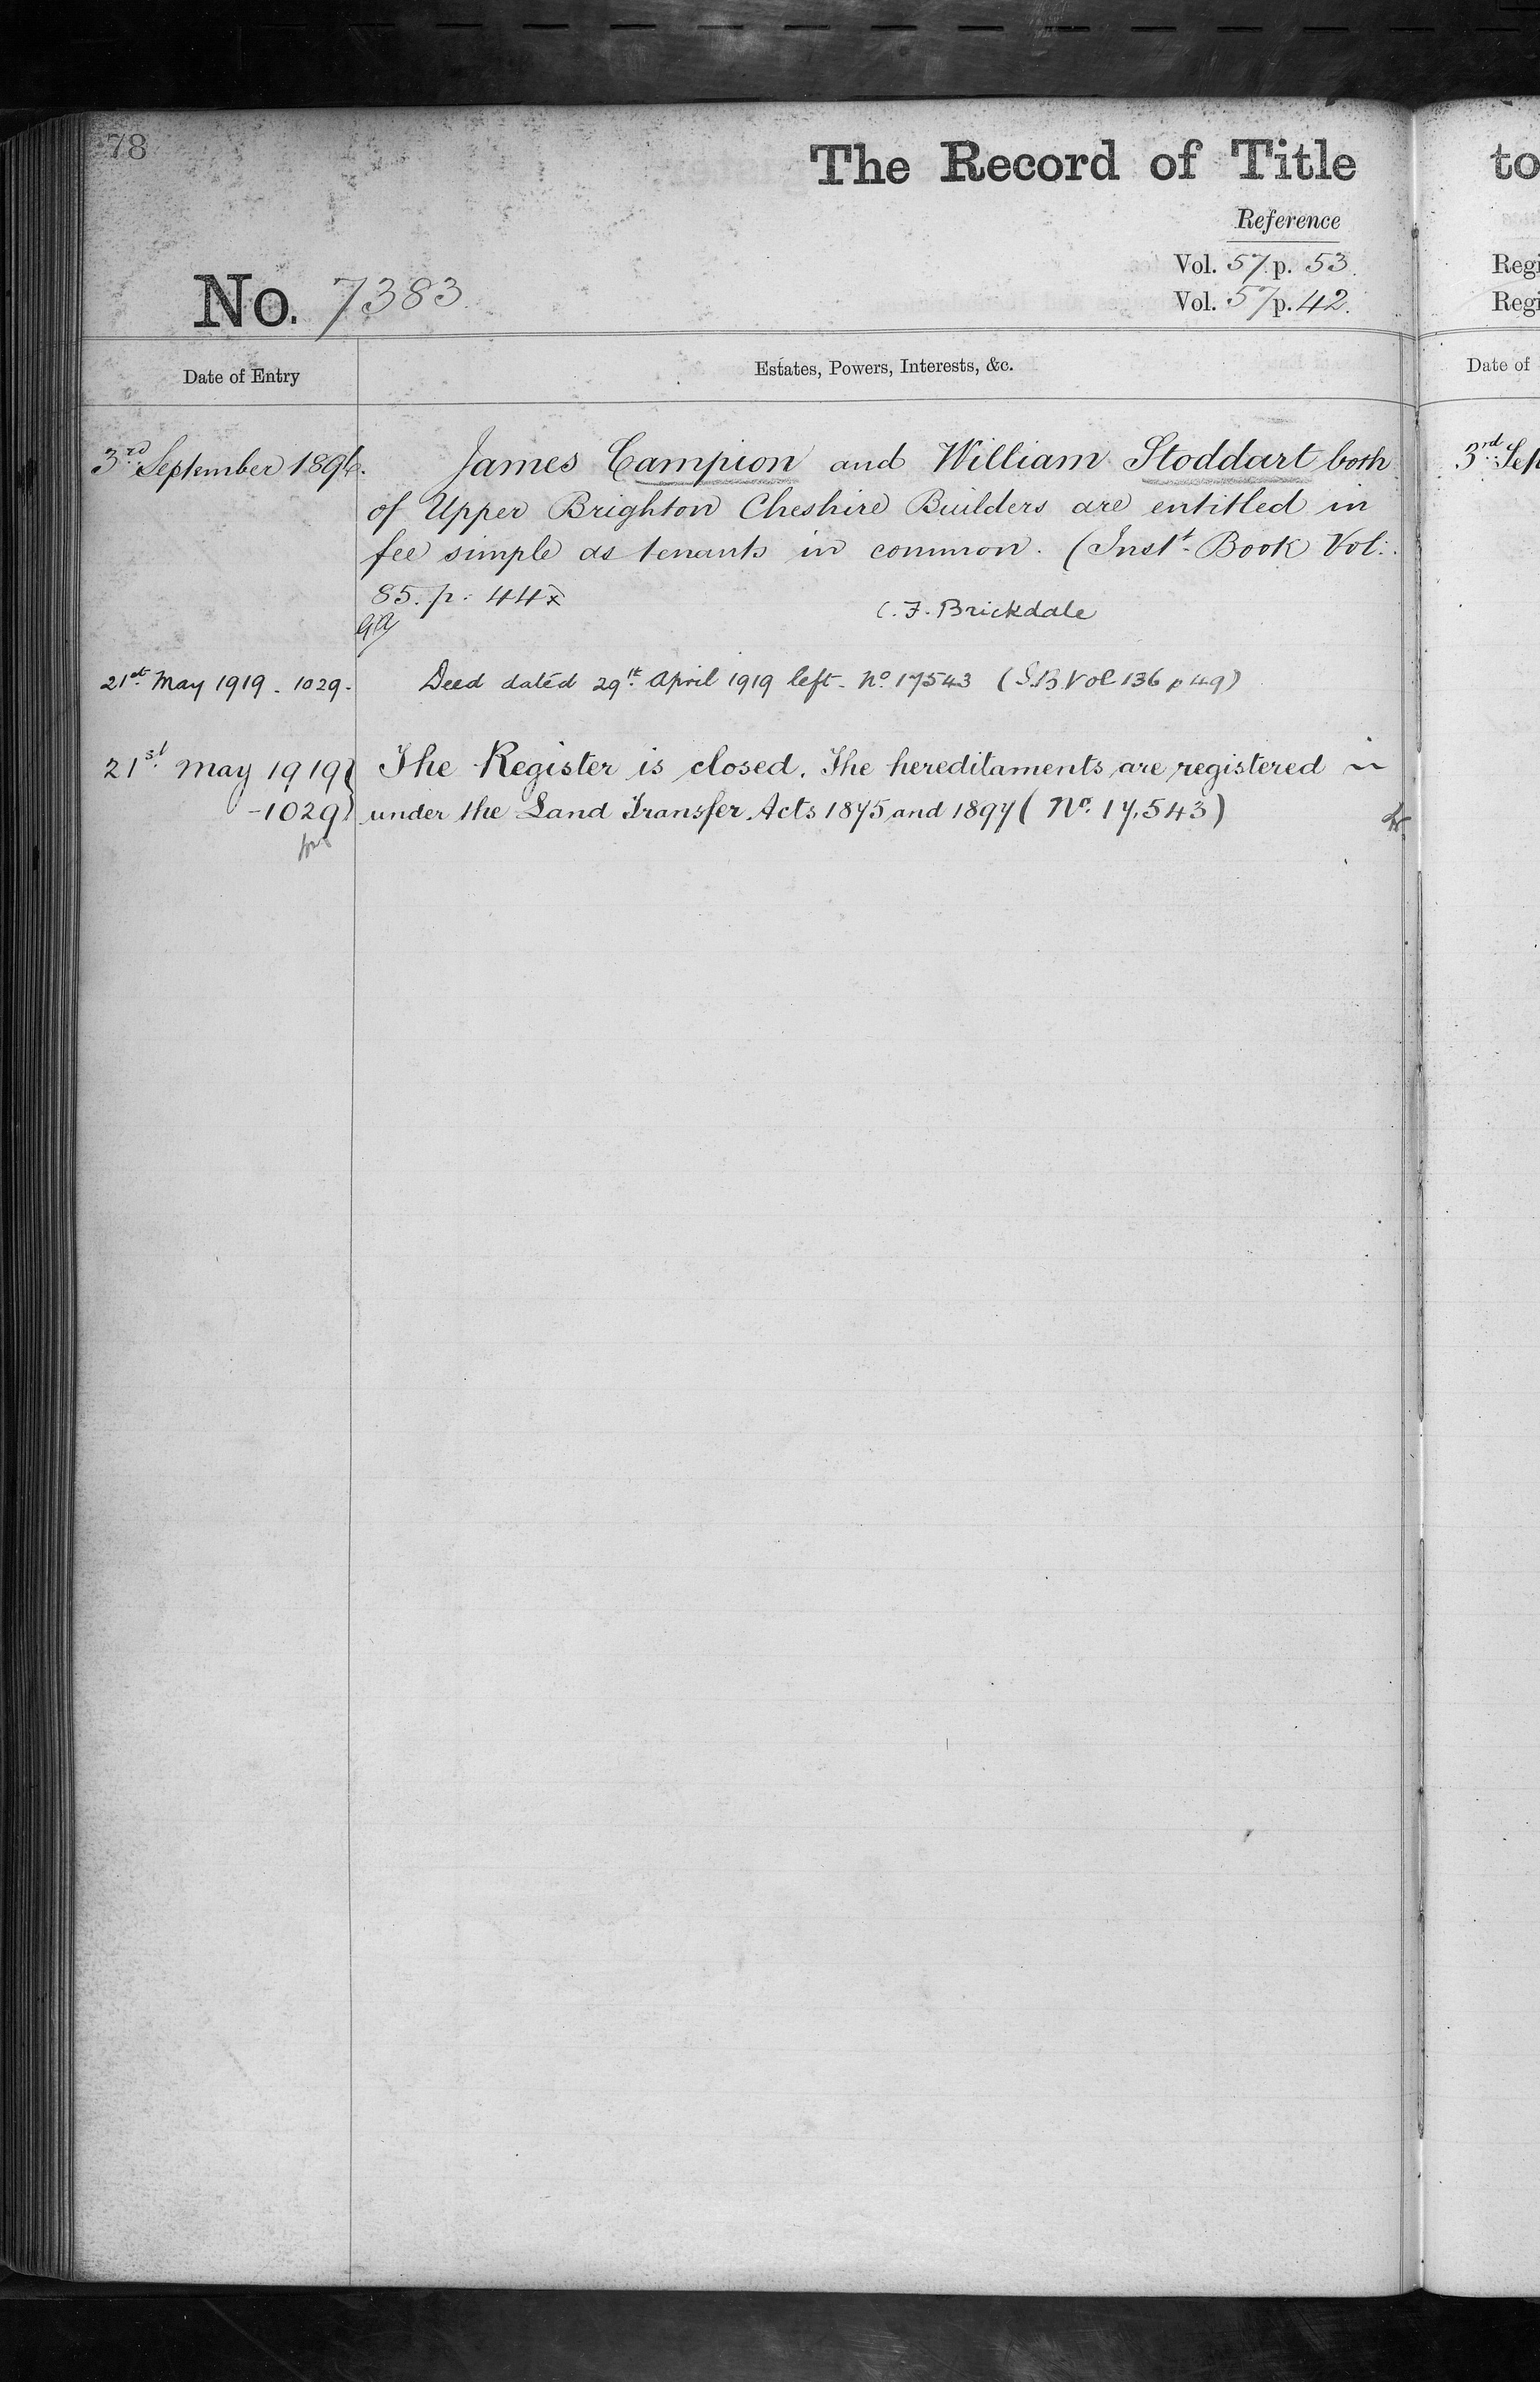 78
The Record of Title
Reference
Vol. 57 p. 53.
Vol. 57 p. 42.
No. 7383.
Date of Entry
Estates, Powers, Interests, &c.
3rd September 1896.
James Campion and William Stoddart both
of Upper Brighton Cheshire Builders are entitled in
fee simple as tenants in common. (Inst. Book Vol:
85. p: 44
C. F. Brickdale
21st May 1919 - 1029.
Deed dated 29th April 1919 left - No 17543 (I.B Vol 136 p 49)
21st May 1919}
-1029}
The Register is closed. The hereditaments are registered
under the Land Transfer Acts 1875 and 1897 (No. 17,543)
to
Regi
Regi
Date of
3rd Sep